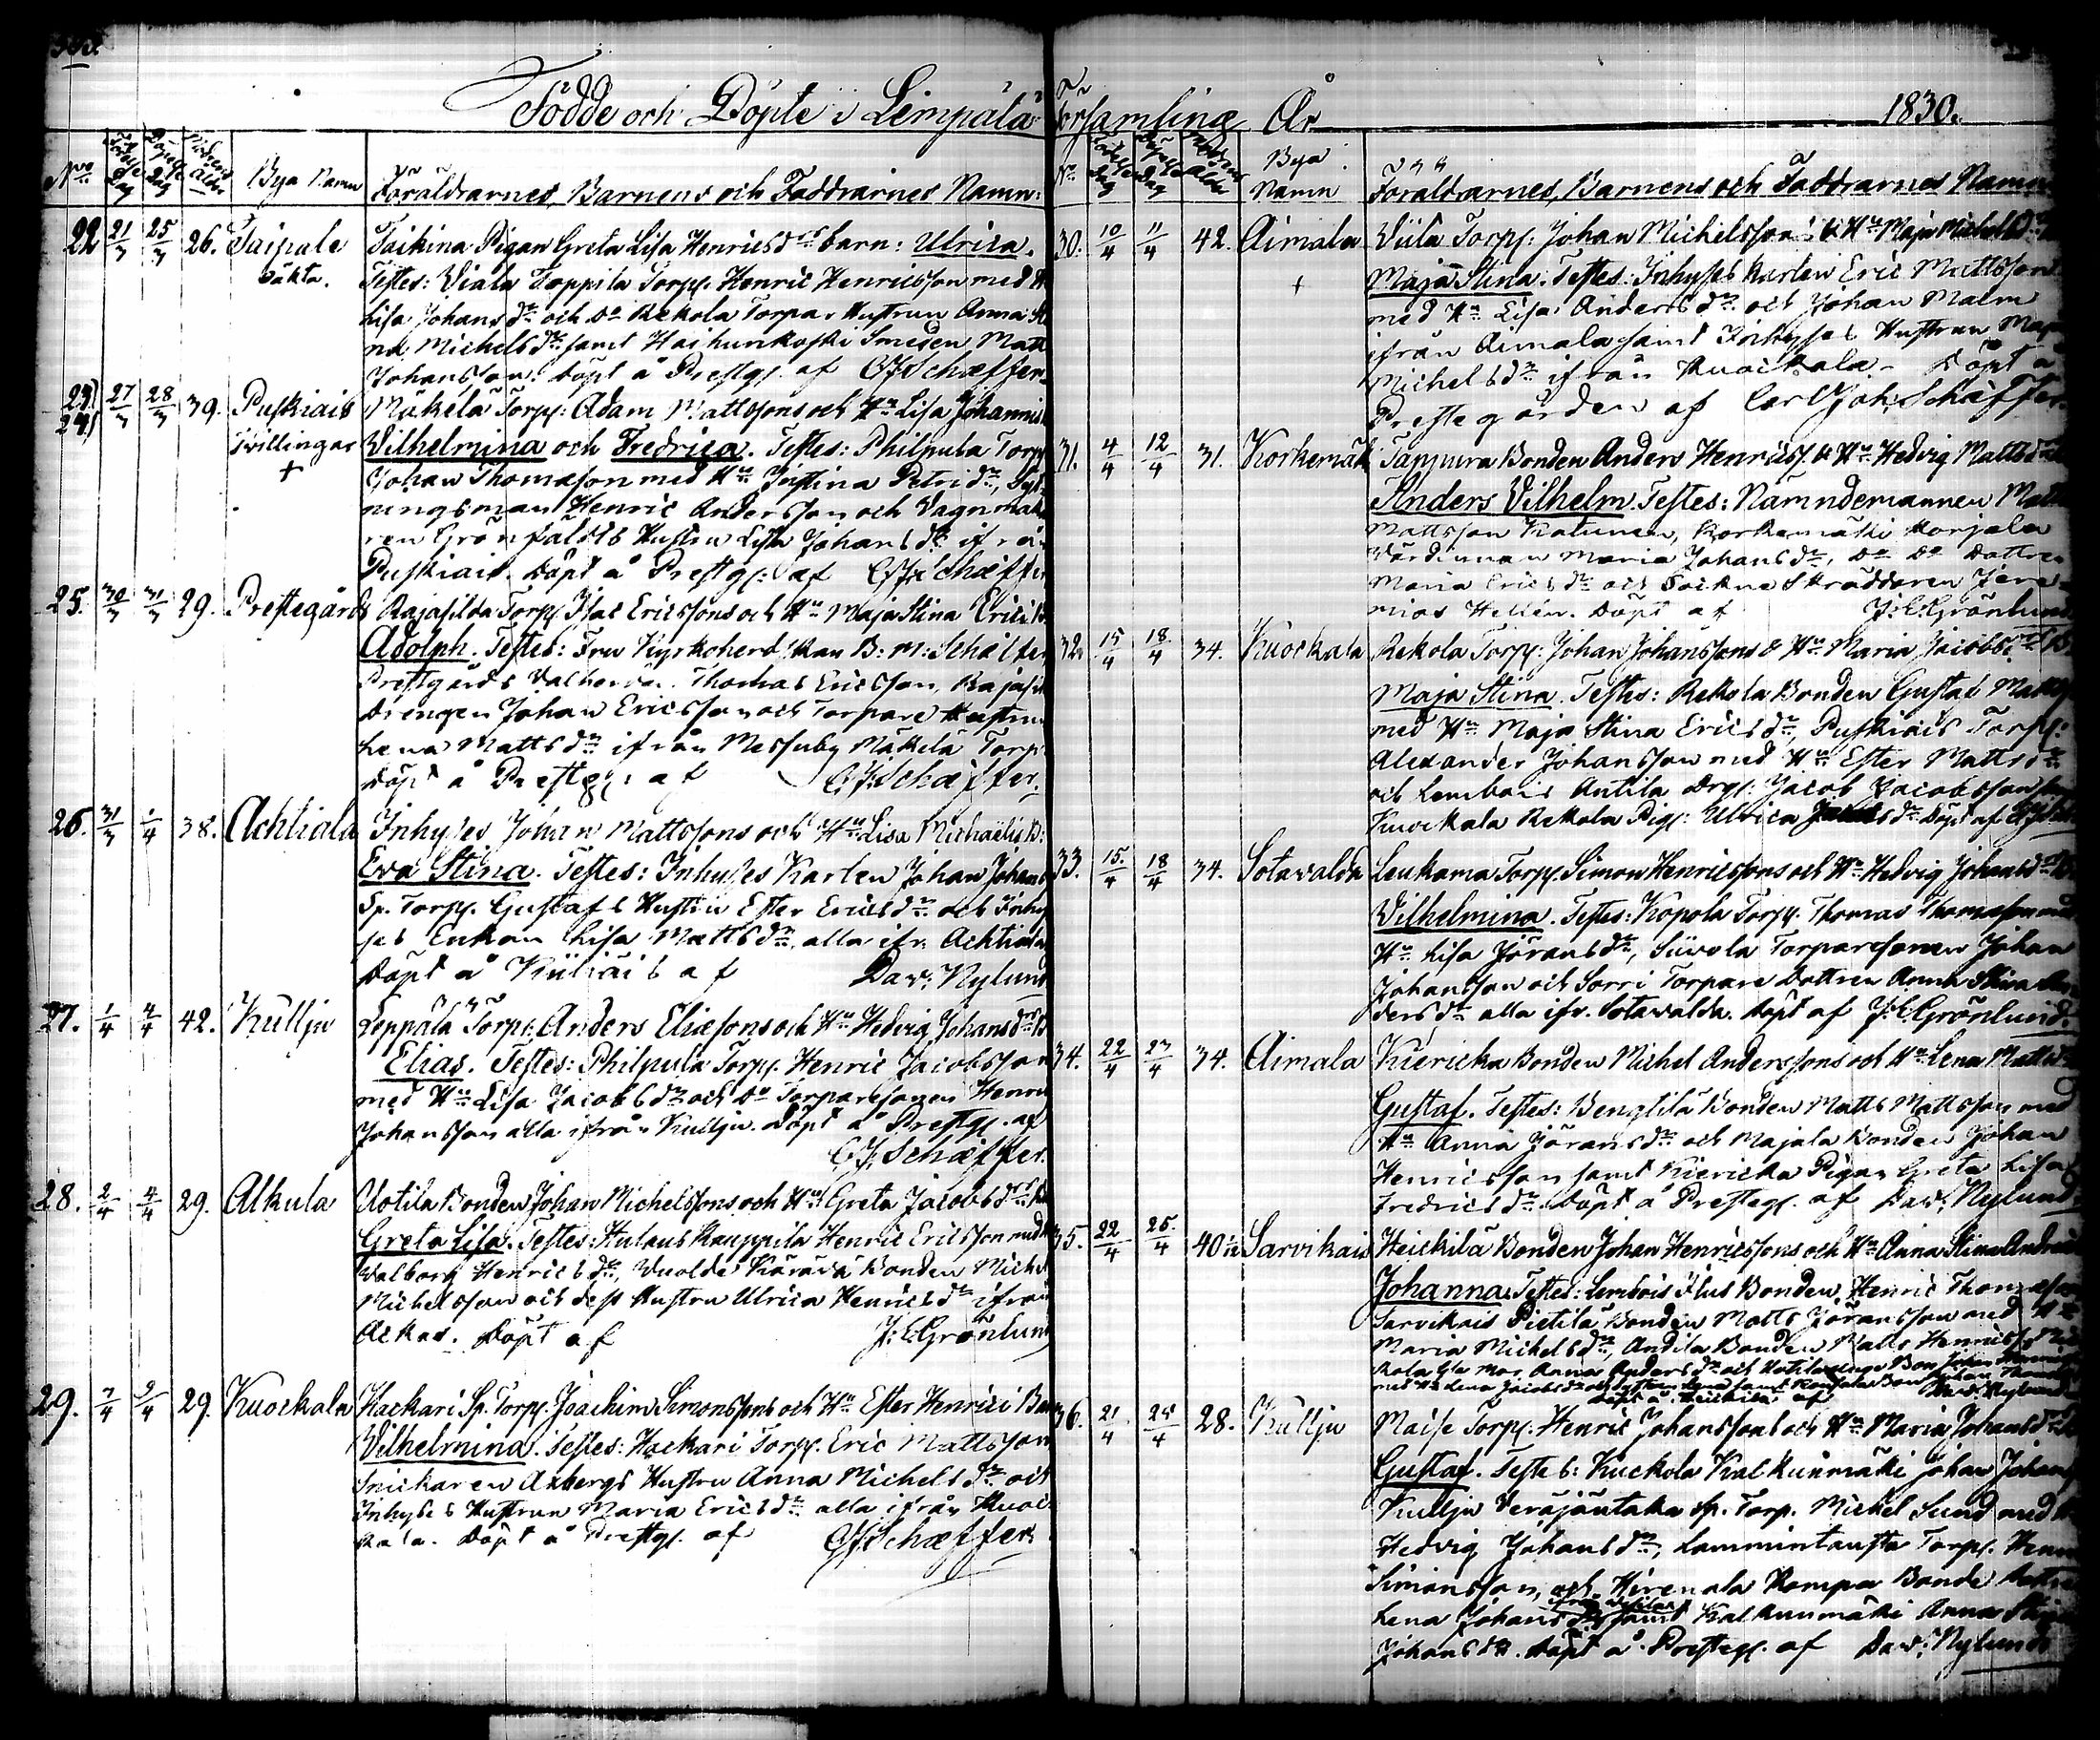 Födde och Döpte i Lempälä
Församling År 1830.
Nro Födelse Dag Döpelse Dag Modrens Ålder Bya Namn Föräldrarnes, Barnens och Faddrarnes Namn:
22 21/3 25/3 26. Taipale Taikina Pigan Greta Lisa Henricsdrs barn: Ulrica.
oäkta. Testes: Viala Toppila Torpp. Henric Henricsson med H
Lisa Johansdr och Do Rekola Torpar Hustrun Anna Sti
na Michelsdr samt Haihunkoski Smeden Matt
Johansson. Döpt å Prestg. af CJ Schæffer
23) 27/3 28/3 39. Puskiais Mäkelä Torpp: Adam Mattssons och Hu Lisa Johannis
24) Tvillingar Vilhelmina och Fredrica. Testes: Philpula Torpp
+ Johan Thomasson med Hu Justina Petridr,
ningsman Henric Andersson och Vagnmaka
ren Grönfaldts Hustru Lisa Johansdr ifrån
Puskiais. Döpt å Prestg: af CJ Schæffer
25. 30/3 31/3 29. Prestegårds Rajasilda Torpp. Isac Ericssons och Hu Maja Stina Erici
Adolph. Testes: Fru Kyrkoherdskan B: M: Schæffer
Prestgårds Thomas Ericsson,
Drengen Johan Ericsson och Torpare Hustrun
Lena Mattsdr ifrån Messuby Mäkelä Torp
Döpt å Prestg: af CJ Schæffer.
26. 31/3 1/4 38. Achtiala Inhyses Johan Mattssons och Hu Lisa Michaelis B:
Eva Stina. Testes: Inhyses Karlen Johan Johans
Sp. Torpp. Gustafs Hustru Ester Ericsdr och Inhy
ses Enkan Lisa Mattsdr, alla ifr. Achtiala
Döpt å af Dav: Nylund
27. 1/4 4/4 42. Kulju Leppälä Torpp: Anders Eliæsons och Hu Hedvig Johansdrs B
Elias. Testes: Philpula Torpp. Henric Jacobsson
med Hu Lisa Jacobsdr och Do Torparesonen Henric
Johansson alla ifrån Kullju. Döpt å Prestg. af
CJ Schæffer.
28. 2/4 4/4 29. Alkula Uotila Bonden Johan Michelssons och Hu Greta Jacobsdrs
Greta Lisa. Testes: Hulaus Kauppila Henric Ericsson med
Valborg Henricsdr, Bonden Michel
Michelsson och dess Hustru Ulrica Henricsdr ifrån
Ackas. Döpt af J: E: Grönlund
29. 7/4 9/4 29. Kuockala Hackari Sp. Torpp. Joachim Simonssons och Hu Ester Henrici Barn
Vilhelmina. Testes: Hackari Torpp. Eric Mattsson
Snickaren Axbergs Hustru Anna Michelsdr och
Inhyses Hustrun Maria Ericsdr alla ifrån Kuoc
kala. Döpt å Prestg. af CJ Schæffer
No Födelse Dag Döpelse Dag Modrens Ålder Bya Namn Föräldrarnes, Barnens och Faddrarnes Namn
30. 10/4 11/4 42. Aimala Viila Torpp: Johan Michelsson & Hu Maja Michelsdr
+ Maja Stina. Testes: Inhyses karlen Eric Mattsson
med Hu Lisa Andersdr och Johan Malm
ifrån Aimala samt Inhyses Hustrun Maja
Michelsdr ifrån Kuockala. Döpt å
Prestegården af Carl Joh: Schæffer
31. 4/4 12/4 31. Korkemäki Tappura Bonden Anders Henricss. & Hu Hedvig Mattsdr
Anders Vilhelm. Testes: Nämndemannen Matts
Mattsson Katunen, Korkemäki Korjala
Värdinnan Maria Johansdr, Do Do Dottren
Maria Ericsdr och Sockne Skräddaren Jere
mias Hellen. Döpt af J: E: Grönlund
32. 15/4 18/4 34. Kuockala Rekola Torpp: Johan Johanssons & Hu Maria Jacobsdrs B.
Maja Stina. Testes: Rekola Bonden Gustaf Matts
med Hu Maja Stina Ericsdr, Puskiais Torpp:
Alexander Johansson med Hu Ester Mattsdr
och Lembois Antila Drg: Jacob Jacobsson
Kuockala Rekola Pig: Ulrica Döpt af
33. 15/4 18/4 34. Sotavalda Leukama Torpp. Simon Henricssons och Hu Hedvig Johansdrs
Vilhelmina. Testes: Kopola Torpp. Thomas Thomasson med
Hu Lisa Jöransdr, Siivola Torparesonen Johan
Johansson och Sorri Torpare Dottren Anna Stina An
dersdr alla ifr. Sotavalda. Döpt af J: E: Grönlund.
34. 22/4 23/4 34. Aimala Kiericka Bonden Michel Anderssons och Hu Lena Mattsdr
Gustaf. Testes: Bengtilä Bonden Matts Mattsson med
Hu Anna Jöransdr och Majala Bonden Johan
Henricsson samt Kiericka Pigan Greta Lisa
Fredricsdr. Döpt å Presteg. af Dav: Nylund
35. 22/4 25/4 40 Sarvikais Heickilä Bonden Johan Henricssons och Hu Anna Stina
Johanna. Testes: Lembois Ilus Bonden Henric Thomasson
Sarvikais Pietilä Bonden Matts Jöransson med Hu
Maria Michelsdr, Andila Bonden Matts Henricss.
Anna Andersdr och
med Hu Lena Jacobsdr
Döpt å Heickilä af Dav: Nylund
36. 21/4 25/4 28. Kullju Maise Torpp. Henric Johanssons och Hu Maria Johansdrs
Gustaf. Testes: Kuckola Kalkunmäki Johan Johans
Kullju Veräjäntaka Sp. Torp. Michel Sund med
Hedvig Johansdr, Lammintausta Torpp. Henr
Simonsson, och Hirenala Kompa Bonde
Lena Johansdr samt Kalkunmäki Anna Stina
Johansdr. Döpt å Presteg. af Dav: Nylund